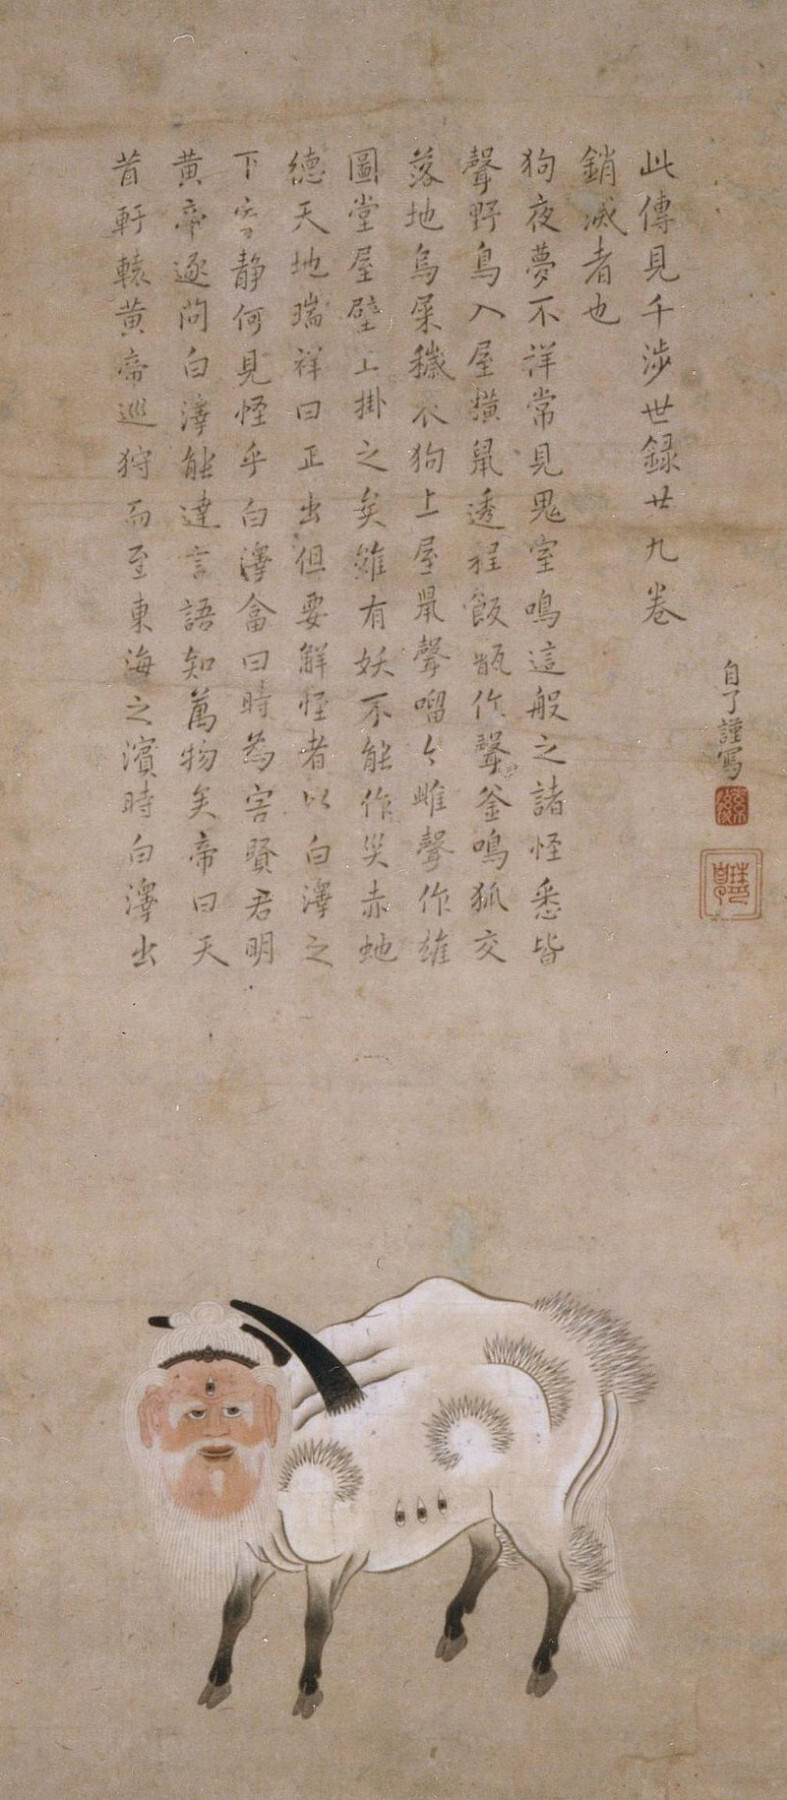 昔軒轅黄帝巡狩而至東海之濱時白澤出
黄帝逐問白澤能達言語知萬物矣帝曰天
下寧静何見怪乎白澤畣曰時為害賢君明
德天地瑞祥曰正出但要解怪者以白澤之
圖堂屋壁上掛之矣雖有妖不能作災赤虵
落地烏屎穢衣狗上屋鼠聲雌聲作雄
聲野鳥入屋横鼠透程飯甑作聲釜鳴狐交
狗夜夢不祥常見鬼室鳴這般之諸怪悉皆
銷滅者也
此傳見千渉世録廿九卷
自了謹寫